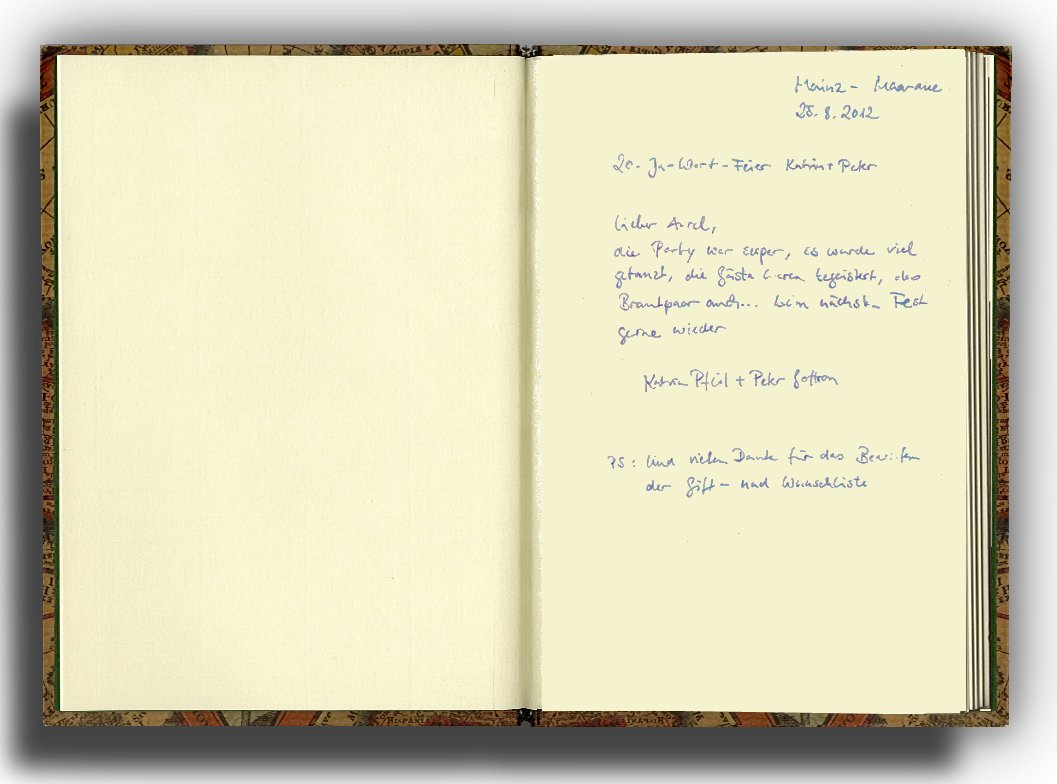 Mainz - Maaraue
25.8.2012
20-Ja-Wort-Feier Katrin + Peter
Lieber Aurel,
die Party war super, es wurde viel
getanzt, die Gäste waren begeistert, das
Brautpaar auch... beim nächsten Fest
gerne wieder
Katrin Pfeil + Peter
PS: Und vielen Dank für das
der Gift- und Wunschliste
HISPANIA